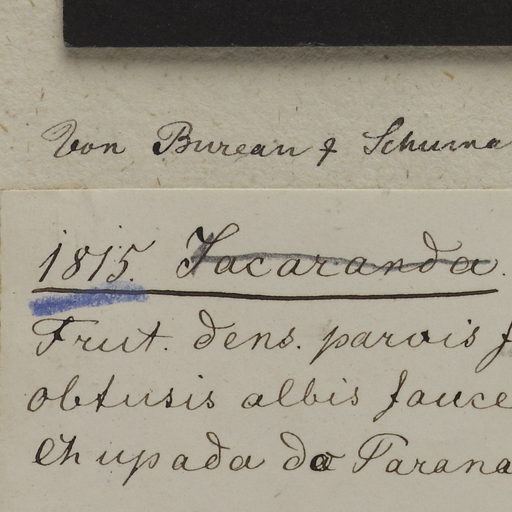 Von Bureau & Schuma
1815. Jacaranda.
Frut. dens. parvis f
obtusis albis fauce
Chupada da Parana